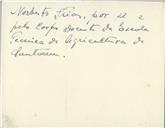 Norberto Frias, por si e
pelo Corpo Docente da Escola
Técnica de Agricultura de
Santarem.